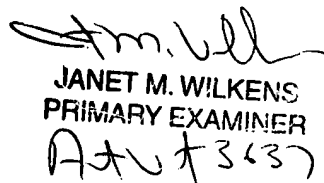 JANET M. WILKENS
PRIMARY EXAMINER
3637